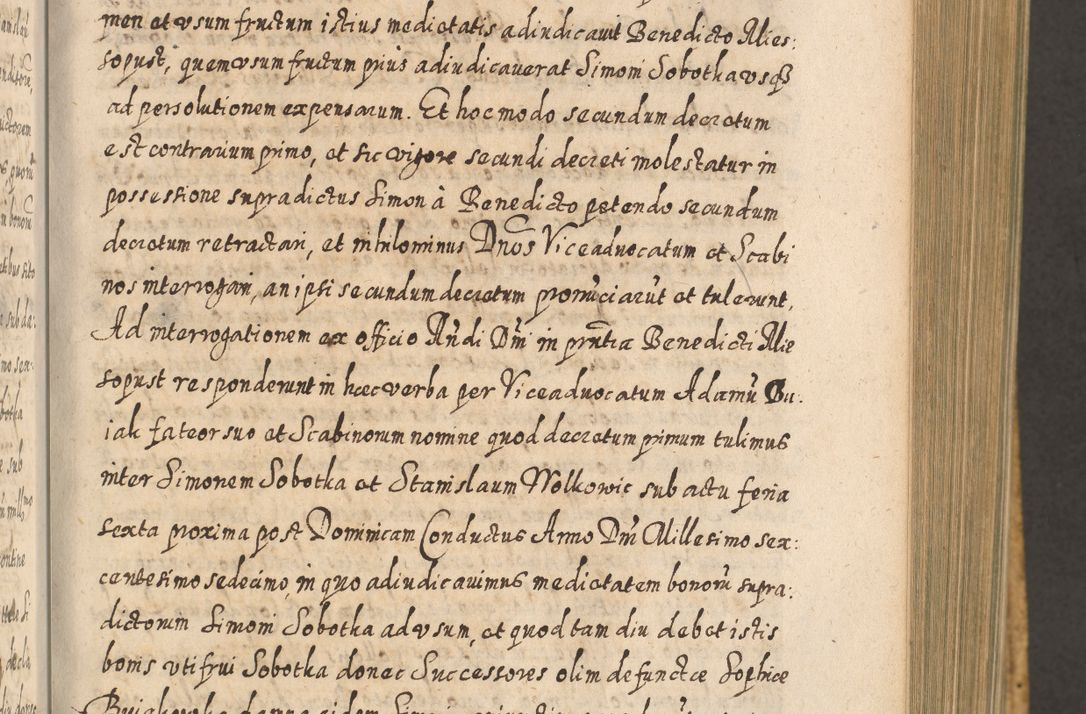 men et vsum fructum istius medietatis adiudicauit Benedicto Mies:
sopust, quem vsum fructum prius adiudicauerat Simoni Sobotka vsq3
ad persolutionem expensarum. Et hoc modo secundum decretum
est contrarium primo, et sic vigore secundi decreti molestatur in
possessione supradictus Simon à Benedicto petendo secundum
decretum retractari, et nihilominus Dnos Viceaduocatum et Scabi
nos interrogari, an ipsi secundum decretum pronuciarūt et tulerunt.
Ad interrogationem ex officio Rñdi Dni in prntia Benedicti Mie
sopust responderunt in hæc verba per Viceaduocatum Adamū Bu:
iak fateor suo et Scabinorum nomine quod decretum primum tulimus
inter Simonem Sobotka et Stanislaum Wolkowic sub actu feria
sexta proxima post Dominicam Conductus Anno Dni Millesimo sex:
centesimo sedecimo, in quo adiudicauimus medietatem bonorū supra:
dictorum Simoni Sobotka ad vsum, et quod tam diu debet istis
bonis vti frui Sobotka donec Successores olim defunctæ Sophiæ